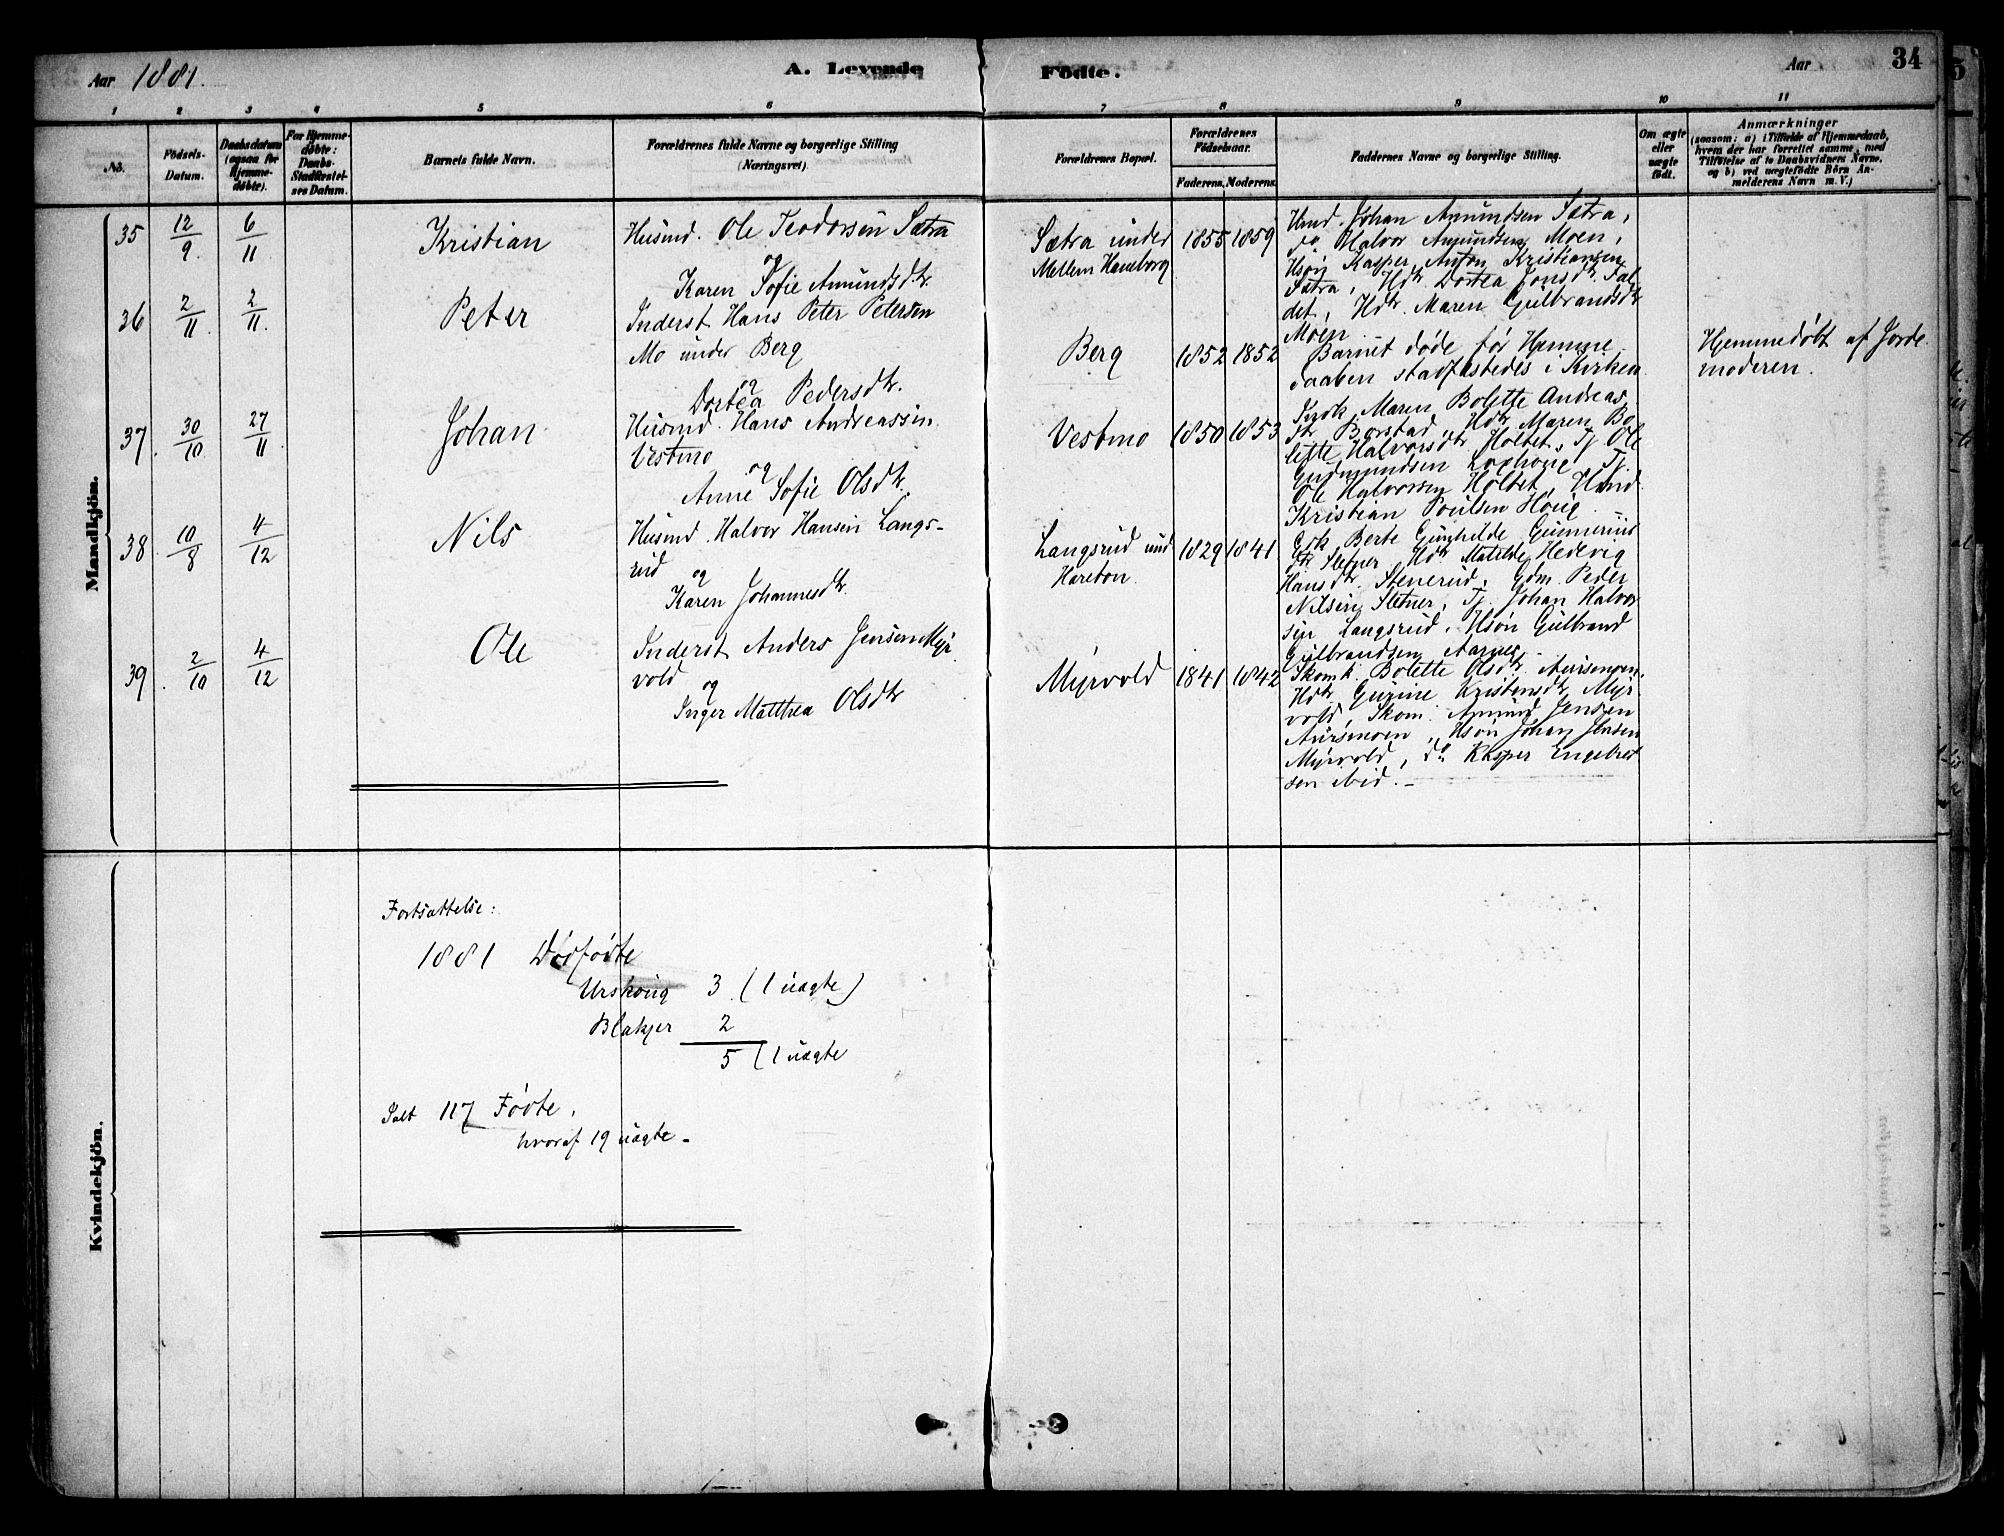 Aar 1881. A. Levende Födte. Aar 34
1 2 3 4 5 6 7 8 9 10 11
No.
Födsels-
Datum.
Daabsdatum
(ogsaa for
Hjemme-
döbte).
For Hjemme-
döbte:
Daabs-
Stadfæstel-
ses Datum.
Barnets fulde Navn.
Forældrenes fulde Navne og borgerlige Stilling
(Næringsvei).
Forældrenes Bopæl.
Forældrenes
Födselsaar.
Faderens. Moderens.
Faddernes Navne og borgerlige Stilling.
Om ægte
eller
uægte
födt.
Anmærkninger
(saasom: a) i Tilfælde af Hjemmedaab,
hvem der har forrettet samme, med
Tilføielse af to Daabsvidners Navne,
og b) ved uægtefödte Börn An-
melderens Navn m. V.)
Mandkjön.
35 12/9 6/11 Kristian
Husmd. Ole Teodorsen Sætra
og
Karen Sofie Amundsdtr.
Sætra under
Mellem Haneborg
1855 1859
Hmd. Johan Amundsen Sætra,
do Halvor Amundsen Moen,
Hsøn Kasper Anton Kristiansen
Sætra, Hdtr Dortea Jonsdtr. Fal
det, Hdtr. Maren Gulbrandsdtr
Moen
36 2/11 2/11 Peter
Inderst Hans Peter Petersen
Mo under Berg
og
Dortea Pedersdtr.
Berg 1852 1852
Barnet døde før Hjemme
daaben stadfæstedes i Kirken
Hjemmedøbt af Jorde
moderen.
37 30/10 27/11 Johan
Husmd. Hans Andreassen
Vestmo
og
Anne Sofie Olsdtr.
Vestmo 1850 1853
Maren Bolette Andreas
dtr Borstad, Hdtr Maren Bo
lette Halvorsdtr Holtet, Tj Ole
Gudmundsen Tj.
Ole Halvorsen Holtet, Hmd
Kristian Poulsen Høiie
38 10/8 4/12 Nils
Husmd. Halvor Hansen Langs-
rud
og
Karen Johannesdtr.
Langsrud und
Hareton.
1829 1841
Gk Berte Gunhilde Gunnerius
dtr Sletner, Hdtr Matilde Hedevig
Hansdtr. Stenerud, Gdm. Peder
Nilsen Sletner, Tj. Johan Halvor
sen Langsrud, Hsøn Gulbrand
Gulbrandsen Aarnes
39 2/10 4/12 Ole
Inderst Anders Jensen Myr
vold
og
Inger Matthea Olsdtr
Myrvold 1841 1842
Skomk. Bolette Olsdtr. Aursmoen,
Hdtr Gurine Kristensdtr Myr
vold, Skom. Amund Jensen
Aursmoen, Hsøn Johan Jensen
Myrvold, do. Kasper Engebret
sen ibid. –
Kvindekjön.
Fortsættelse:
1881 Dødfødte
Urskoug 3 (1 uægte)
Blakjer 2
5 (1 uægte
Ialt 117 Fødte,
hvoraf 19 uægte –